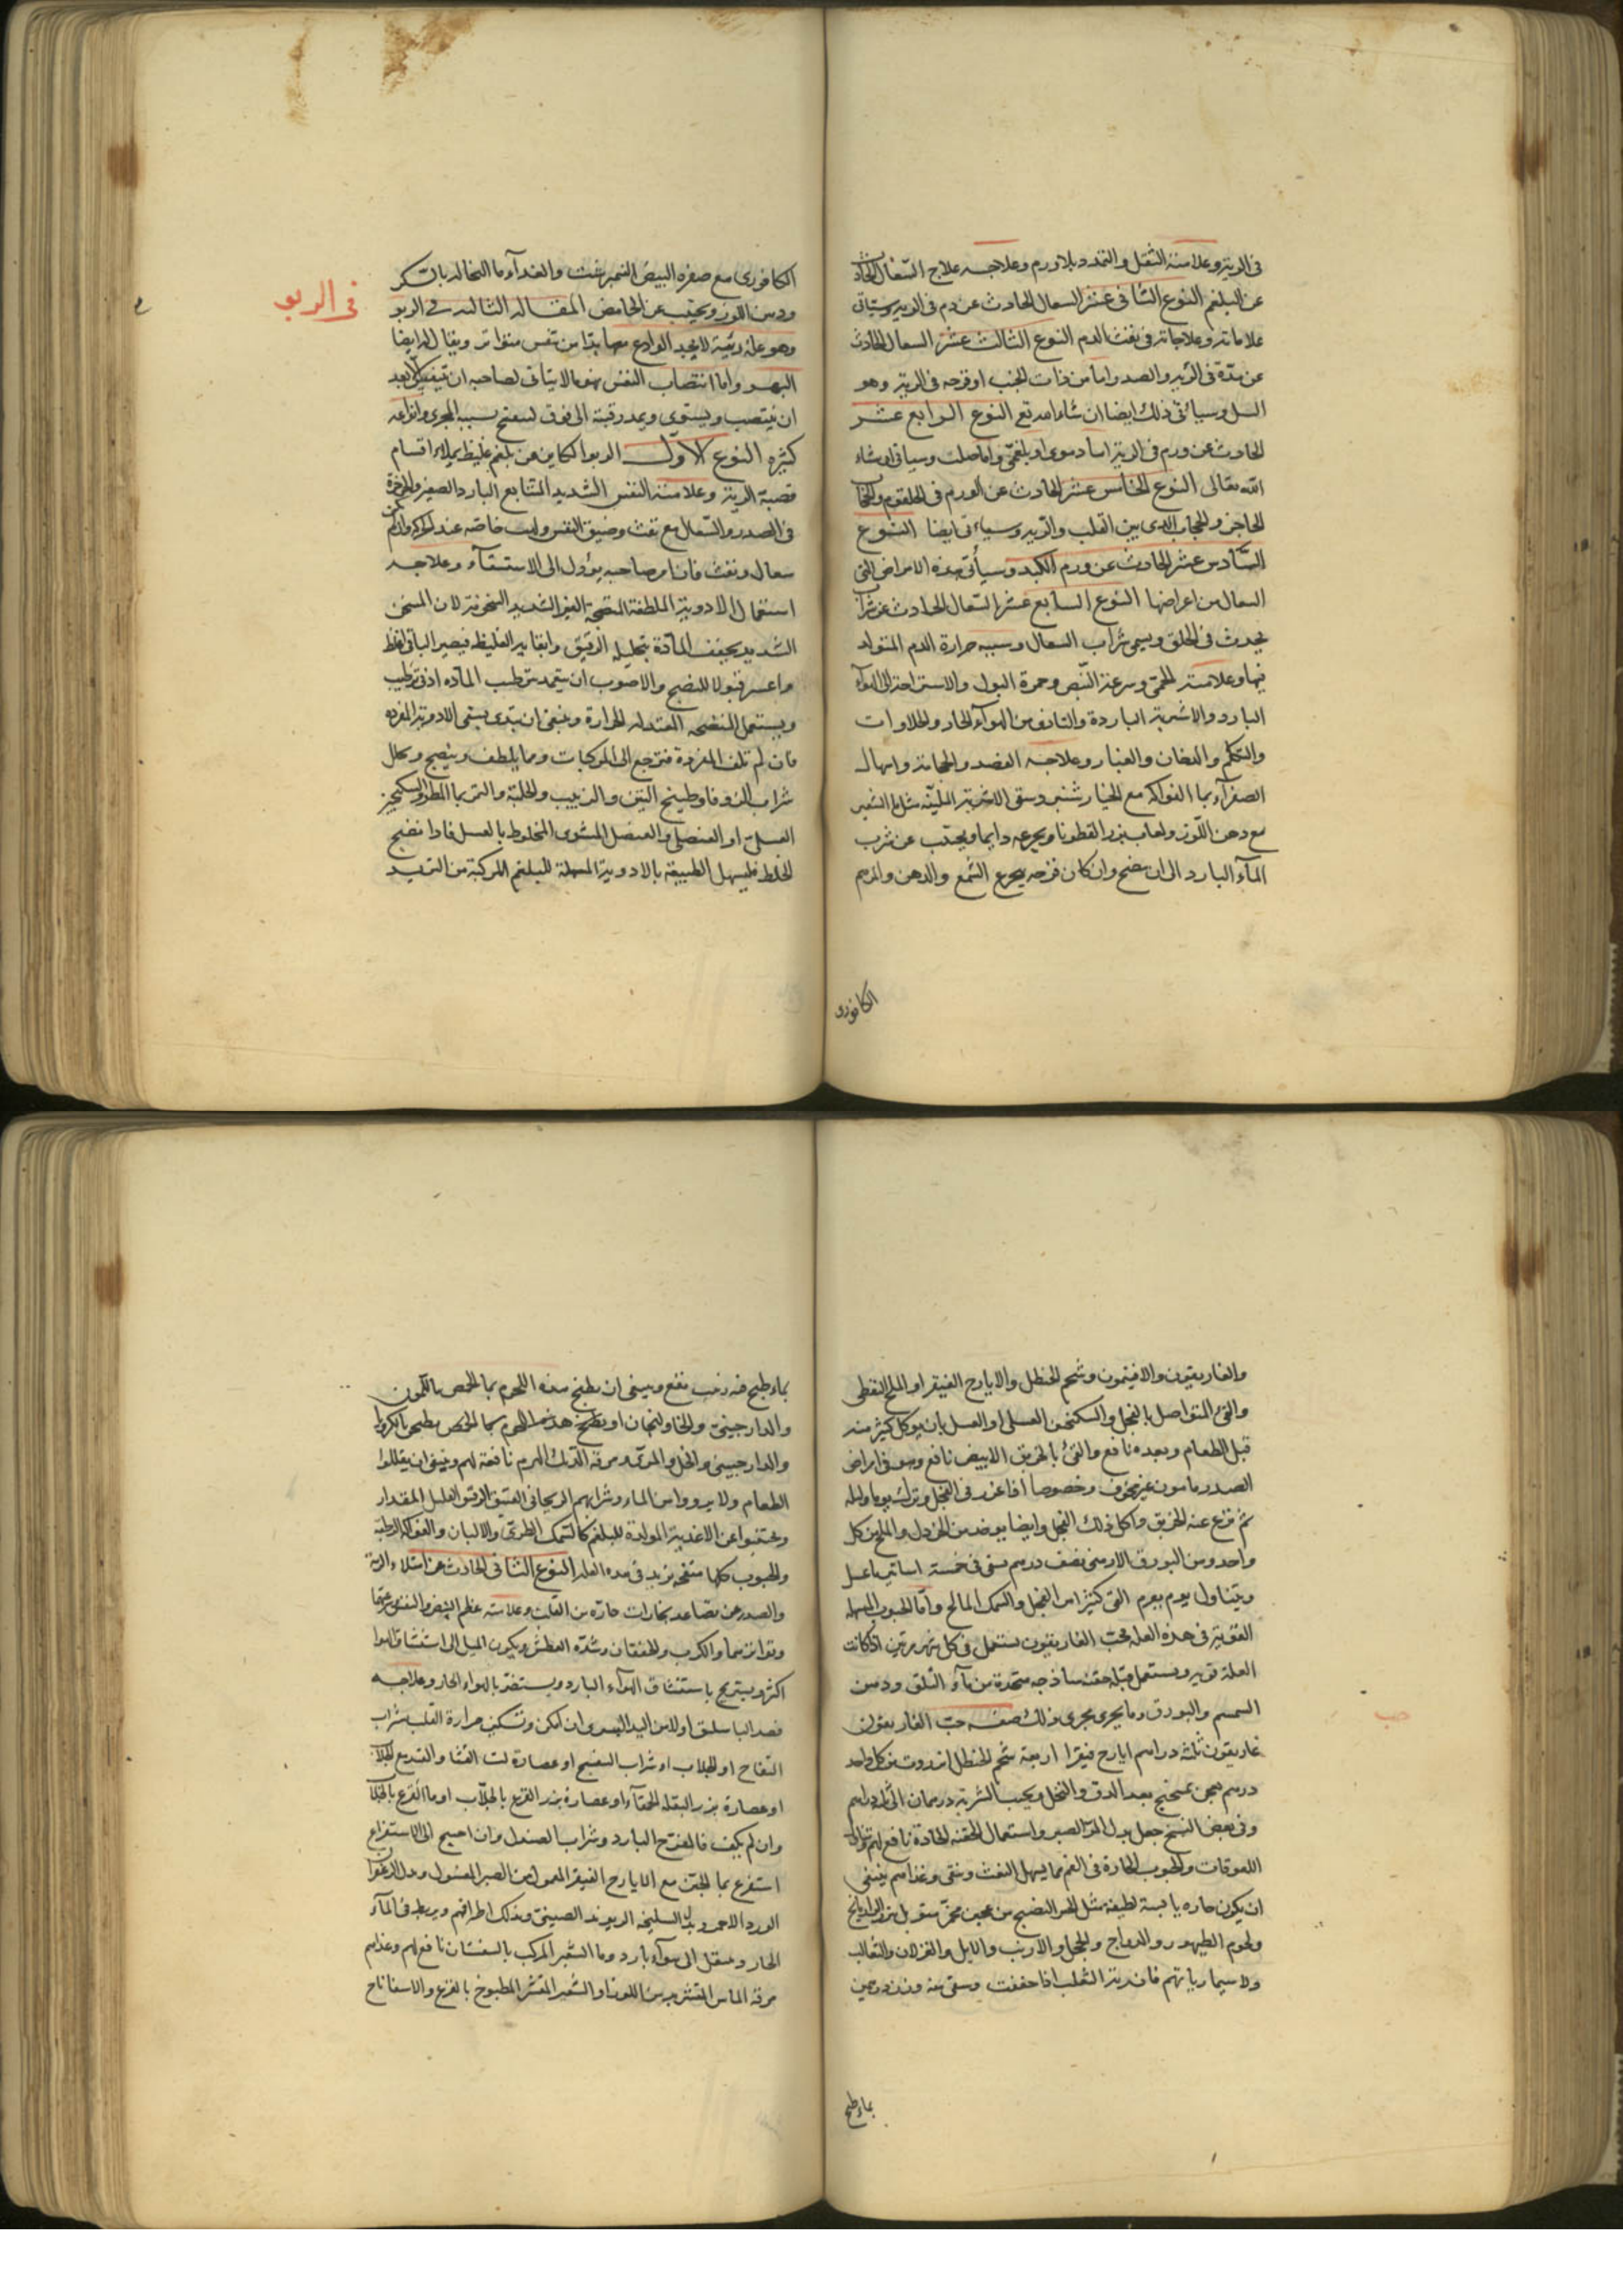 في الرية وعلامته الثقل والتمدد بلا ورم وعلاجه علاج السعال الحادث
عن البلغم النوع الثاني عشر السعال الحادث عن دم في الرية وسياتي
علاماته وعلاجاته في نفث الدم النوع الثالث عشر السعال الحادث
عن مدة في الرية والصدر اما من ذات الجنب او قرحه في الرية وهو
السل وسيأتي ذلك ايضا ان شاء الله تع النوع الرابع عشر
الحادث عن ورم في الرية اما دموى او بلغمى واما صلب وسياتي ان شاء
الله تعالى النوع الخامس عشر الحادث عن الورم في الحلقوم والحجاب
الحاجز والحجاب الذي بين القلب والرية وسياتي ايضا النوع
السادس عشر الحادث عن ورم الكبد وسيأتي هذه الامراض التي
السعال من اعراضها النوع السابع عشر السعال الحادث عن شراب
يحدث في الحلق ويسمى شراب السعال وسببه حرارة الدم المتولد
فيها وعلامته الحمى وسرعة النبض وحمرة البول والاستراحة الى الهواء
البارد والاشربة الباردة والتاذى من الهوآء الحار والحلاوات
والتكلم والدخان والغبار وعلاجه الفصد والحجامة واسهال
الصفرآء بما الفواكه مع الخيار شنبر وسقى الاشربة الملينة مثل ما الشعير
مع دهن اللوز ولعاب بزر القطونا ويجرعه دايما ويجتنب عن شرب
المآء البارد الى ان ينضج وان كان قرحه يجرع الشمع والدهن والمرهم
الكافورى
الكافورى مع صفره البيض النيمبرشت والغدآء ما النخاله بالسكر
ودهن اللوز ويجتنب عن الحامض المقالة الثالثه في الربو
في الربو
وهو علة رئية لا يجد الوادع معها بدا من تنفس متواتر ويقال له ايضا
البهر واما انتصاب النفس فهو ما لا يتأتى لصاحبه ان يتنفس الا بعد
ان ينتصب ويستوى ويمد رقبته الى فوق لينفتح بسببه المجرى وانواعه
كثيره النوع الاول الربو الكاين من بلغم غليظ يملاء اقسام
قصبة الرية وعلامته النفس الشديد المتتابع البارد الصغير والخرخرة
في الصدر والسعال مع نفث وضيق النفس ولهث خاصه عند الحركه وان لم يكن
سعال ونفث فان امر صاحبه يؤول الى الاستسقآء وعلاجه
استعمال الادوية الملطفة المنضجة الغير الشديد السخونة لان المسخن
الشديد يجفف المادة بتحليله الرقيق وابقايه الغليظ فيصير الباقي اغلظ
واعسر قبولا للنضج والاصوب ان يتعمد ترطيب المآده ادنى ترطيب
ويستعمل المنضجه المعتدله الحرارة وينبغى ان يبتدى بسقى الادوية المفرده
فان لم تلف المفردة فترجع الى المركبات ومما يلطف وينضج ويحلل
شراب الزوفا وطبيخ التين والزبيب والحلبة والتمر بما المطر والسكنجبين
العسلى او العنصلى والعنصل المشوى المخلوط بالعسل فاذا نضج
الخلط فليسهل الطبيعة بالادوية المسهلة للبلغم المركبة من التربد
والغاريقون والافيتمون وشحم الحنظل والايارج الفيقرا والملح النفطى
والقئ المتواصل بالفجل والسكنجبين العسلى او العسل بان يوكل كثير منه
قبل الطعام وبعده نافع والقئ بالخربق الابيض نافع وهو في امراض
الصدر مامون غير مخوف وخصوصا اذا غرز في الفجل وترك يوما وليله
ثم نزع عنه الخربق واكل ذلك الفجل وايضا يوخذ من الخردل والملح من كل
واحد ومن البورق الارمنى نصف درهم يسقى في خمسة اساتير ما عسل
ويتناول يوم بيوم القئ كثيرا من الفجل والسمك المالح واما الحبوب المسهله
القوية في هذه العله فحب الغاريقون يستعمل في كل شهر مرتين اذا كانت
العلة قويه ويستعمل قبله حقنه ساذجه متخذة من مآء السلق ودهن
السمسم والبورق وما يجرى مجرى ذلك صفة حب الغاريقون
حب
غاريقون ثلثة دراهم ايارج فيقرا اربعة شحم الحنظل انزروت من كل واحد
درهم يعجن بميبختج بعد الدق والنخل ويحبب الشربة درهمان الى ثلثة دراهم
وفي بعض النسخ جعل بدل المر الصبر واستعمال الحقنه الحادة نافع لهم
اللعوقات والحبوب الحارة في الفم مما يسهل النفث وينقى وغذاهم ينبغى
ان يكون حاره يابسة لطيفة مثل الخبز النضيج من عجين مخمر متوبل ببزر الرازيانج
ولحوم الطيهور والدراج والحجل والارنب والايل والغزلان والثعالب
ولا سيما رياتهم فان رية الثعلب اذا جففت وسقى منه وزن درهمين
بماء طبخ
بماء طبخ فيه زبيب نفع وينبغى ان يطبخ هذه اللحوم بما الحمص بالكمون
والدارجينى والخاولنجان او يطبخ هذه اللحوم بما الحمص
والدارجينى والخل والمرى ومرقة الديك الهرم نافعة لهم وينبغى ان يقللوا
الطعام ولا يرووا من الماء وشرابهم الريحاني العتيق الرقيق القليل المقدار
ويجتنبوا عن الاغدية المولدة للبلغم كالسمك الطرى والالبان والفواكه الرطبة
والحبوب كلها منفخه يزيد في هذه العله النوع الثاني الحادث عن امتلاء الرية
والصدر عن تصاعد بخارات حارة من القلب وعلامته عظم النبض والنفس وسرعتهما
وتواترهما والكرب والخفقان وشدة العطش ويكون الميل الى استنشاق الهوا
اكثر ويستريح باستنشاق الهوآء البارد ويستضر بالهواء الحار وعلاجه
فصد الباسليق اولا من اليد اليسرى ان امكن وتسكين حرارة القلب بشراب
التفاح او الجلاب او شراب البنفسج او عصارة لب القثا والقرع بالجلاب
او عصارة بزر البقله الحمقآء او عصارة بزر القرع بالجلاب او ما القرع بالجلاب
وان لم يكف فالمفرح البارد وشراب الصندل وان احتيج الى الاستفراغ
استفرغ بما الجبن مع الايارج الفيقرا المعمول من الصبر المغسول وبدل الزعفران
الورد الاحمر وبدل السليخه الريوند الصينى وبدلك اطرافهم ويربط في المآء
الحار وينقل الى هوآء بارد وما الشعير المركب بالسفستان نافع لهم وغذاهم
مرقة الماش المقشر بدهن اللوز او الشعير المقشر المطبوخ بالقرع والاسفاناخ